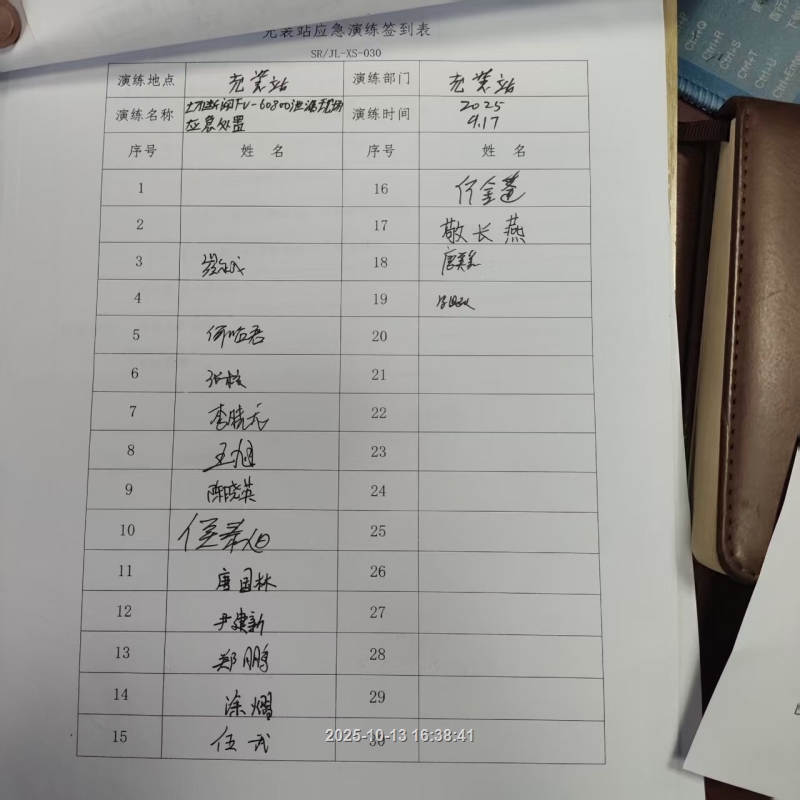 充装站应急演练签到表
SR/JL-XS-030
演练地点 充装站 演练部门 充装站
演练名称 切断阀FV-60800泄漏现场 应急处置 演练时间 2025 9.17
序号 姓名 序号 姓名
1 16
2 17 敬长燕
3 18
4 19
5 何临君 20
6 21
7 李晓元 22
8 王旭 23
9 陈晓英 24
10 25
11 唐国林 26
12 尹建新 27
13 郑鹏 28
14 涂熠 29
15 伍武 30
2025-10-13 16:38:41
Ctrl+Q
Ctrl+R
Ctrl+S
Ctrl+T
Ctrl+U